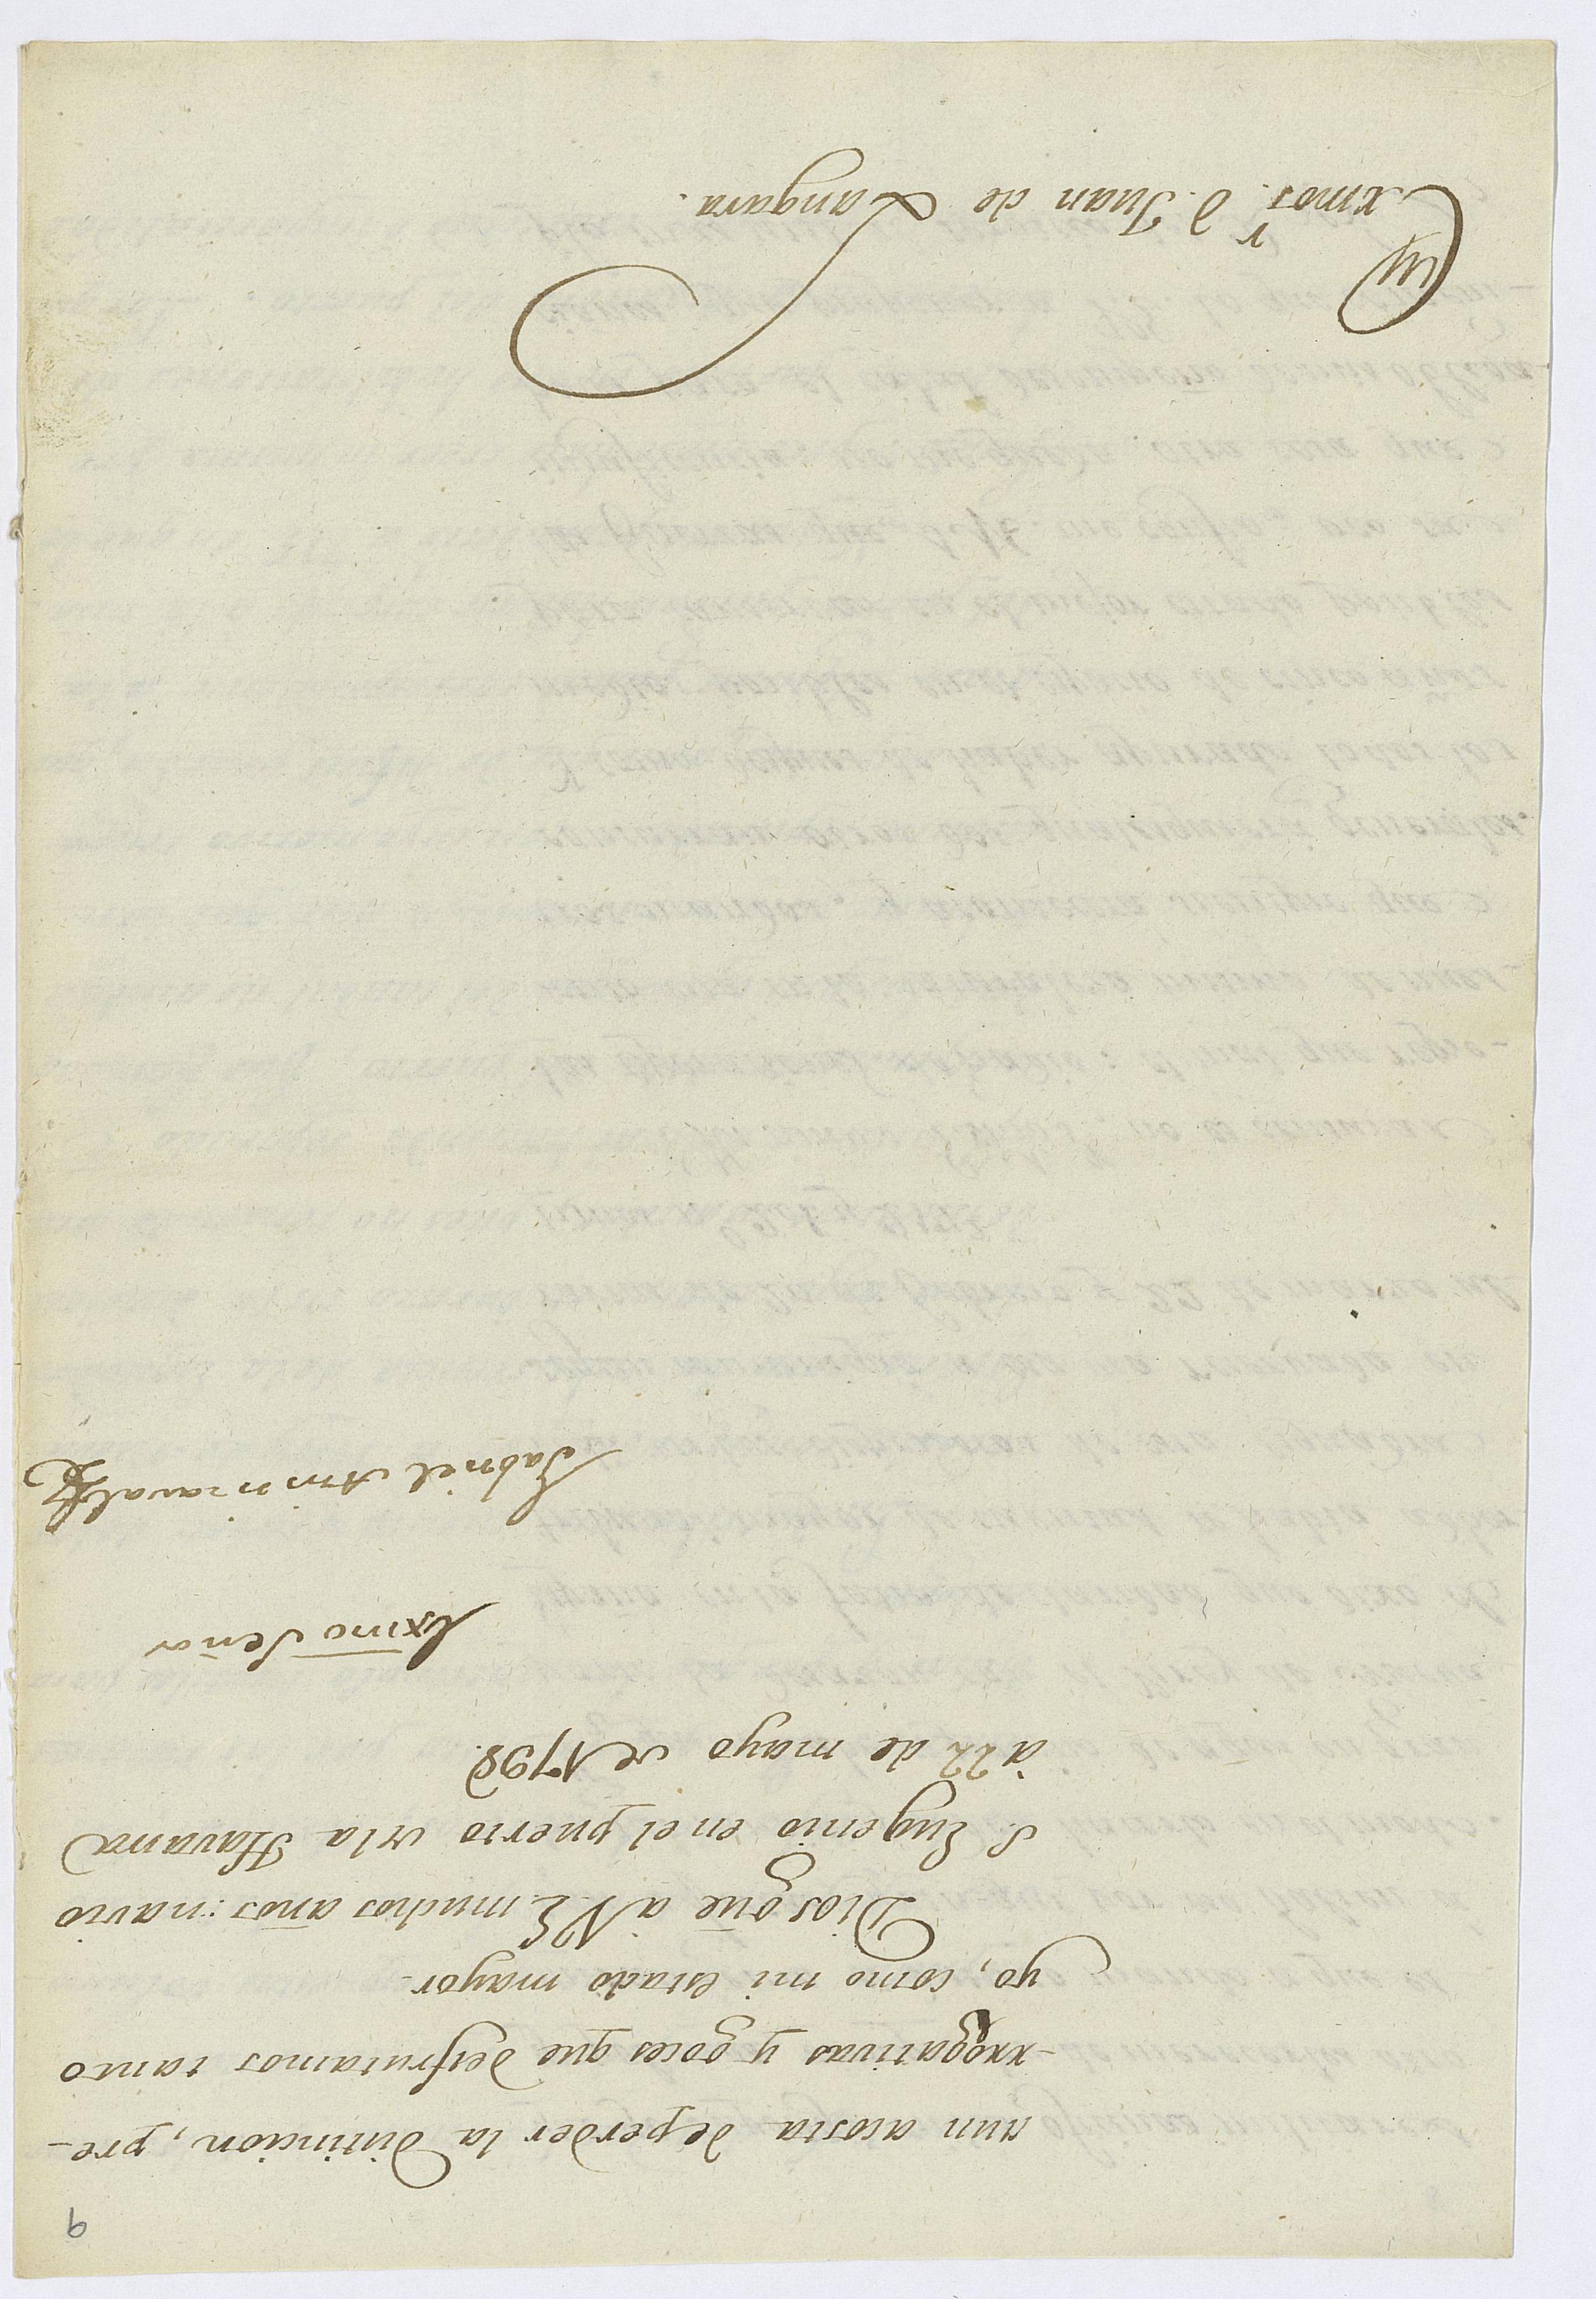 9
aun acosta deperder la distincion, pre-
-rrogativas y goces que desfrutamos tanto
yo, como mi estado mayor.
Dios güe à V.E. muchos años: navio
S. Eugenio en el puerto de la Havana
à 22 de mayo de 1798.
Exmo Señor
Gabriel Aristizaval
Exmo Sr. D. Juan de Langara.